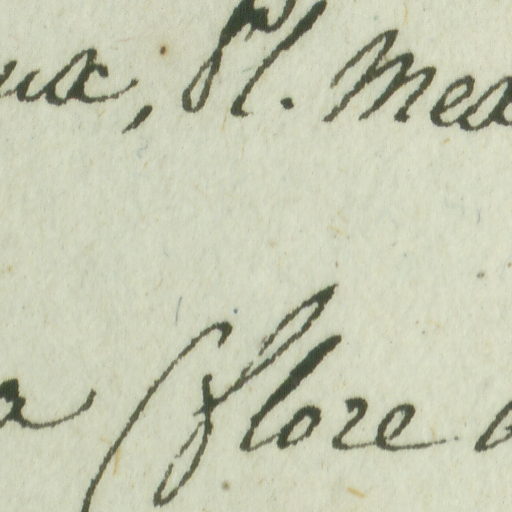 ux, Pl. Mex
a (flore a